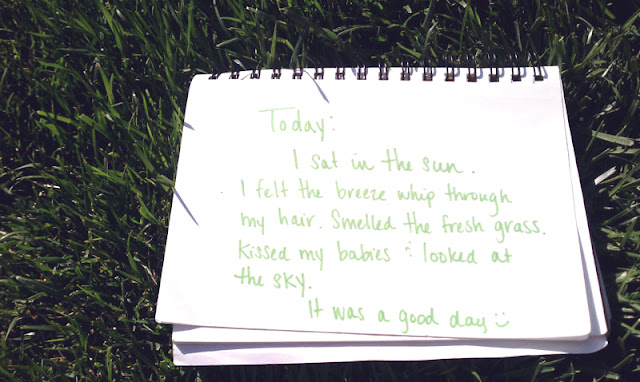 Today:
I sat in the sun.
I felt the breeze whip through
my hair. Smelled the fresh grass.
Kissed my babies & looked at
the sky.
It was a good day :)